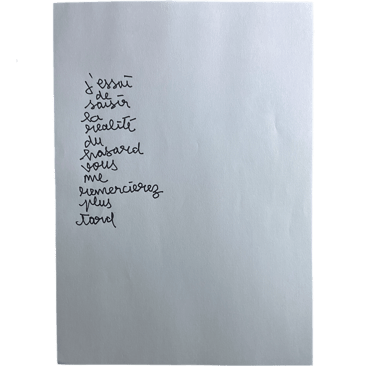 j'essai
de
saisir
la
réalité
du
hasard
vous
me
remercierez
plus
tard